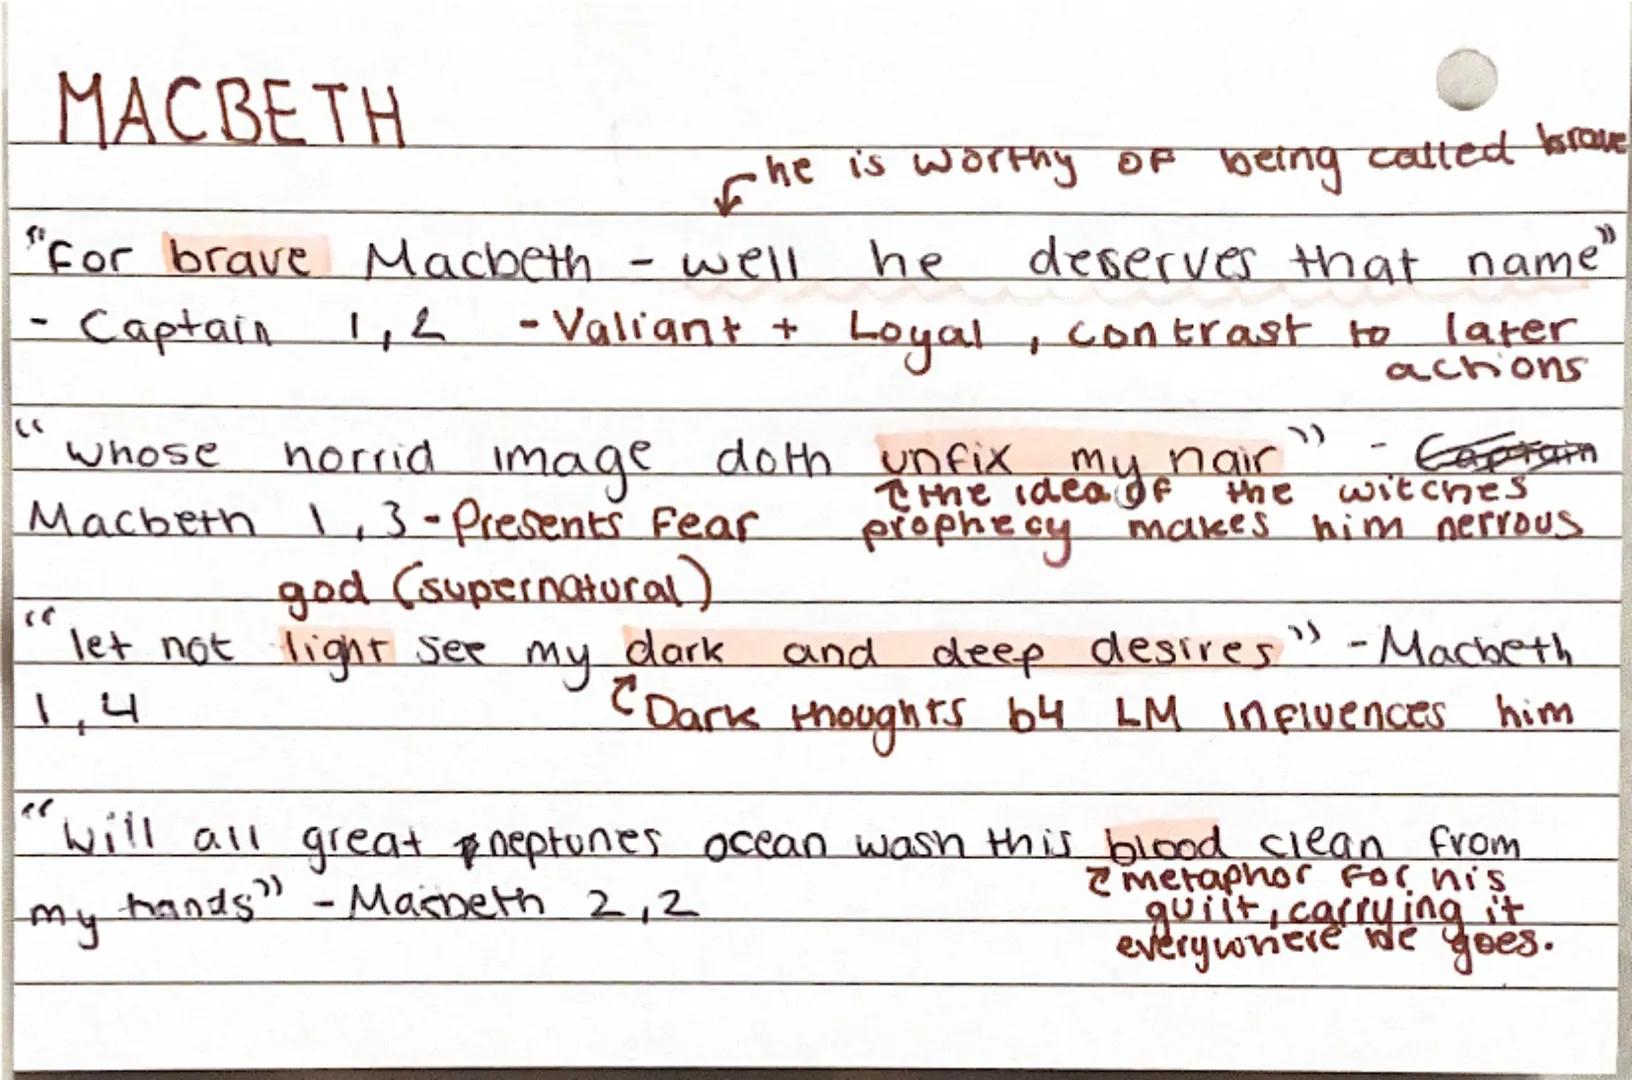 MACBETH
he is worthy of being called brave
"For brave Macbeth - well he deserves that name"
- Captain 1,2 - Valiant + Loyal, contrast to later
actions
"whose horrid image doth unfix my hair" - Captain
the idea of the witches
Macbeth 1,3 - Presents Fear prophecy makes him nervous
god (supernatural)
"let not light see my dark and deep desires" - Macbeth
1,4 Dark thoughts b4 LM influences him
"will all great neptunes ocean wash this blood clean from
metaphor for his
my hands" - Macbeth 2,2 guilt, carrying it
everywhere he goes.